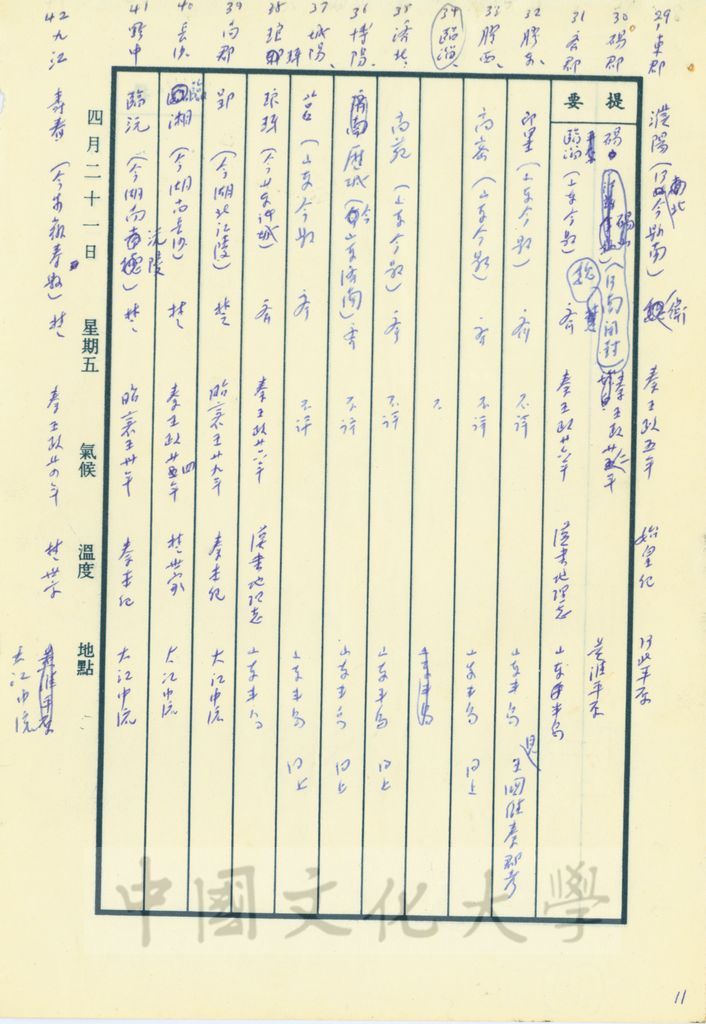 29 東郡 濮陽 (河北今縣南) 衛 秦王政五年 始皇紀 河北平原
30 碭郡 碭 碭山 (河南開封) 魏 秦王政廿二年 黃淮平原
提要
31 齊郡 臨淄 (山東今縣) 齊 秦王政廿六年 漢書地理志 山東半島
32 膠東 即墨 (山東今縣) 齊 不詳 山東半島 見王國維秦郡考
33 膠西 高密 (山東今縣) 齊 不詳 山東半島 同上
34 臨淄 不 山東半島
35 濟北 (山東今縣) 齊 不詳 山東半島 同上
36 博陽 濟南 歷城 (今山東濟南) 齊 不詳 山東半島 同上
37 城陽 莒 (山東今縣) 齊 不詳 山東半島 同上
38 琅邪 琅琊 (今山東諸城) 齊 秦王政廿六年 漢書地理志 山東半島
39 南郡 郢 (今湖北江陵) 楚 昭襄王廿九年 秦本紀 大江中流
40 長沙 臨湘 (今湖南長沙) 楚 秦王政廿四年 楚世家 大江中流
41 黔中 臨沅 (今湖南沅陵) 楚 昭襄王卅年 秦本紀 大江中流
四月二十一日 星期五 氣候 溫度 地點
42 九江 壽春 (今安徽壽縣) 楚 秦王政廿四年 楚世家 大江中流
中國文化大學
11